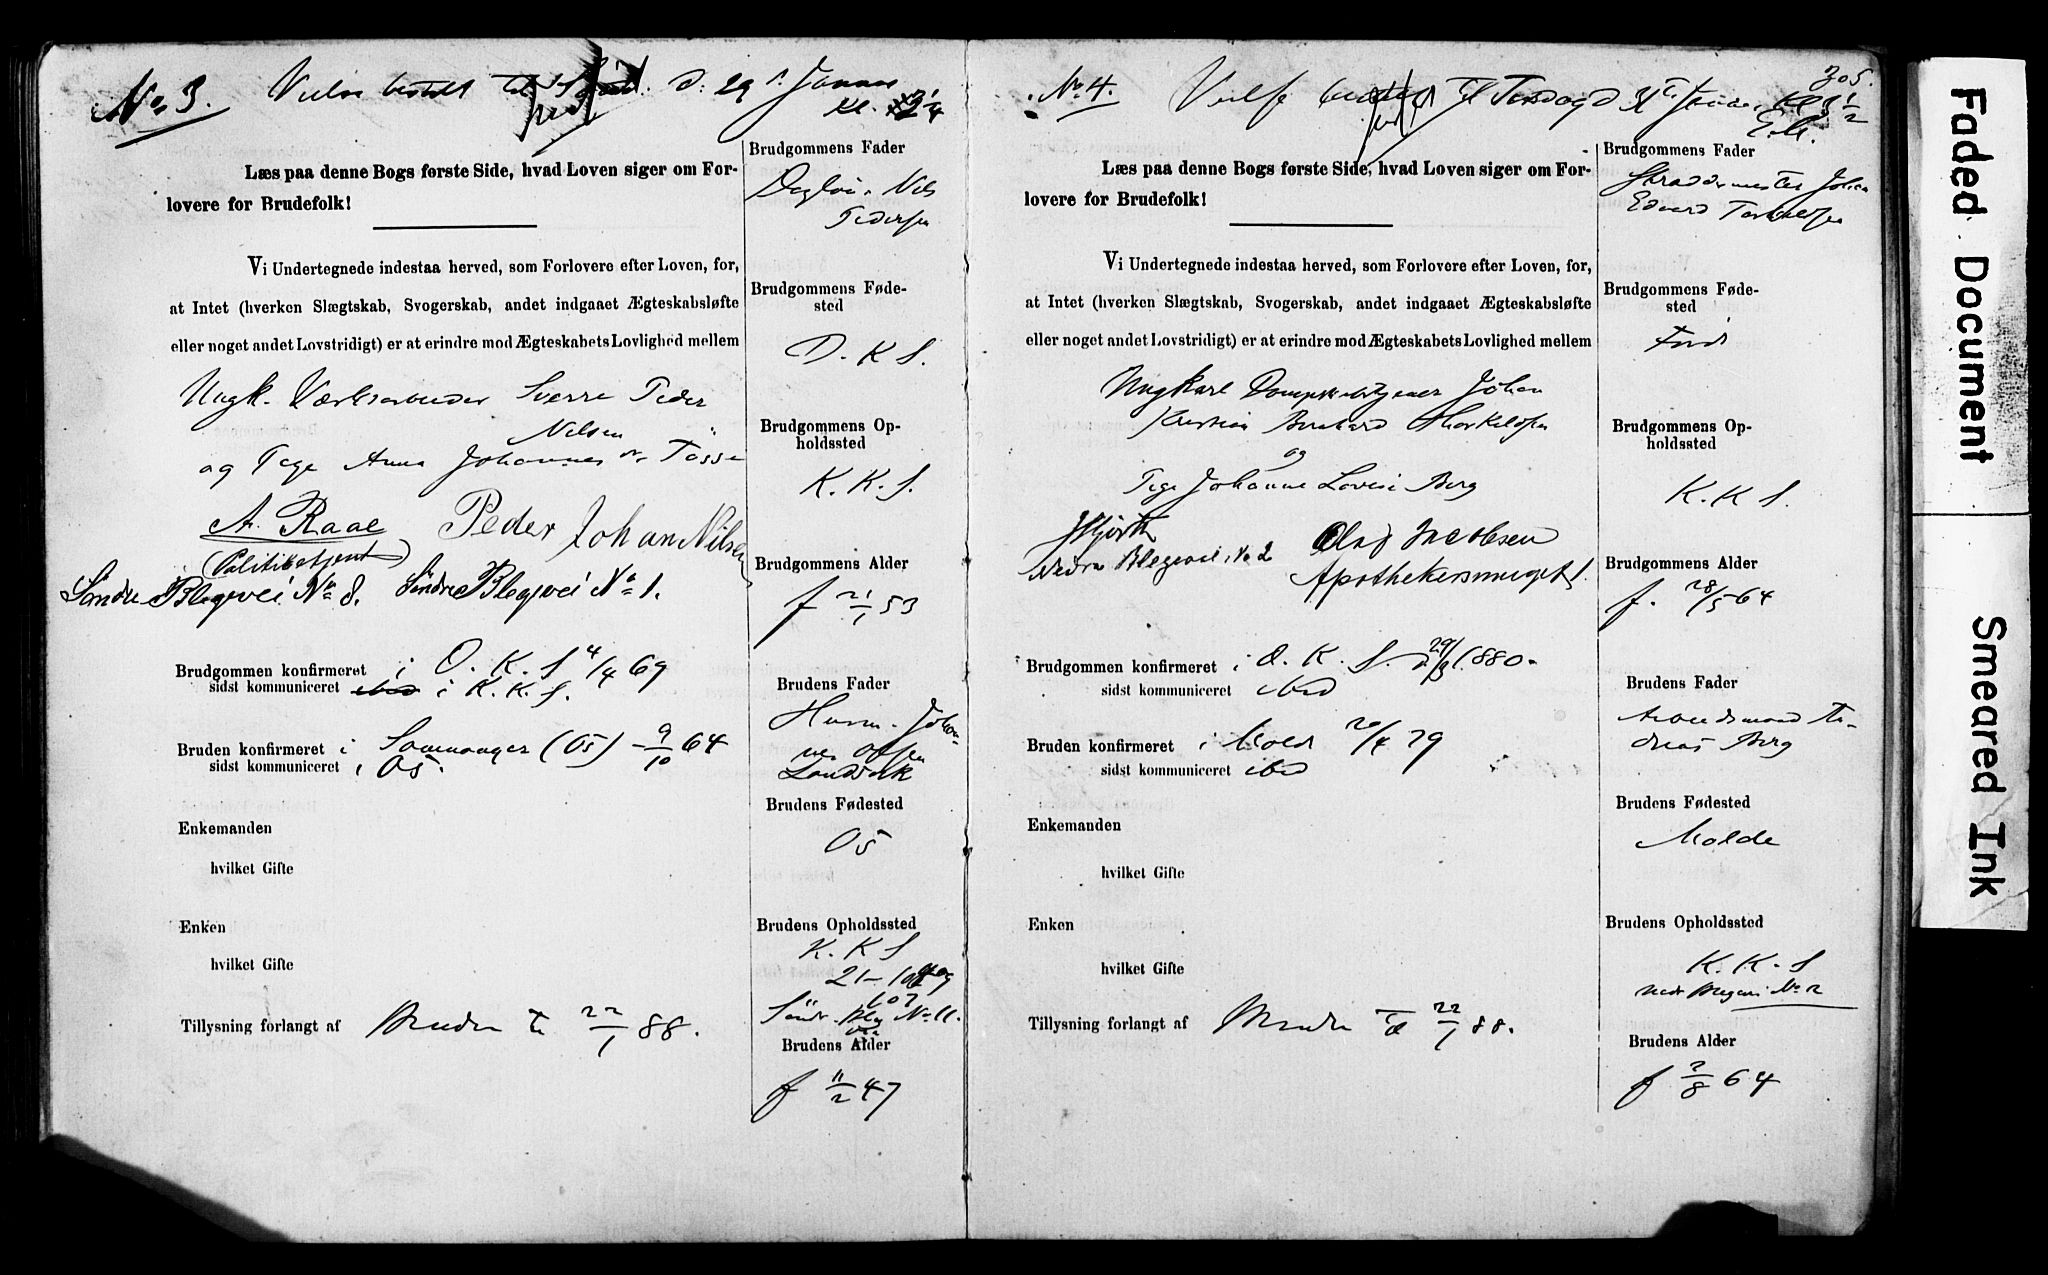 No 3. Vielse bestilt til d. 29 Januar
Kl.
Læs paa denne Bogs første Side, hvad Loven siger om For-
lovere for Brudefolk!
Vi Undertegnede indestaa herved, som Forlovere efter Loven, for,
at Intet (hverken Slægtskab, Svogerskab, andet indgaaet Ægteskabsløfte
eller noget andet Lovstridigt) er at erindre mod Ægteskabets Lovlighed mellem
Ungk. Værksarbeider Sverre Peder
Nilsen
og Pige Anna Johannesdr Tøsse
A. Raae Peder Johan Nilsen
(Politibetjent)
Søndre Blegevei No 8. Søndre Blegevei No 1.
Brudgommen konfirmeret i D. K. S 4/4 69
sidst kommuniceret i K. K. S.
Bruden konfirmeret i Samnanger (Os) - 9/10 64
sidst kommuniceret i Os.
Enkemanden
hvilket Gifte
Enken
hvilket Gifte
Tillysning forlangt af Bruden 22/1 88.
Brudgommens Fader
Nils
Pedersen
Brudgommens Føde-
sted
D. K S.
Brudgommens Op-
holdssted
K. K. S.
Brudgommens Alder
f 21/1 53
Brudens Fader
Husm. Johan-
nes
Landsvik
Brudens Fødested
Os
Brudens Opholdssted
K. K S
Søndr. Bleg No 11.
vei
Brudens Alder
f 11/2 47
305.
No 4. Vielse til Torsdag d 31
Læs paa denne Bogs første Side, hvad Loven siger om For-
lovere for Brudefolk!
Vi Undertegnede indestaa herved, som Forlovere efter Loven, for,
at Intet (hverken Slægtskab, Svogerskab, andet indgaaet Ægteskabsløfte
eller noget andet Lovstridigt) er at erindre mod Ægteskabets Lovlighed mellem
Ungkarl Johan
Kristian Bernhard Thorkeldsen
og
Pige Johanne Lovise Berg
Hjorth Olaf Jacobsen
Nedre Blegevei No 2 Apothekersmuget 1.
Brudgommen konfirmeret i D. K. S. 1880.
sidst kommuniceret ibid
Bruden konfirmeret i Molde 20/4 79
sidst kommuniceret ibid
Enkemanden
hvilket Gifte
Enken
hvilket Gifte
Tillysning forlangt af Bruden 22/1 88.
Brudgommens Fader
Johan
Edvard Torkelsen
Brudgommens Føde-
sted
Brudgommens Op-
holdssted
K. K S.
Brudgommens Alder
f. 28/5 64
Brudens Fader
Arbeidsmand An-
dreas Berg
Brudens Fødested
Molde
Brudens Opholdssted
K. K. S
Nedr Blegevei No 2
Brudens Alder
f 2/8 64
Faded Document
Smeared Ink